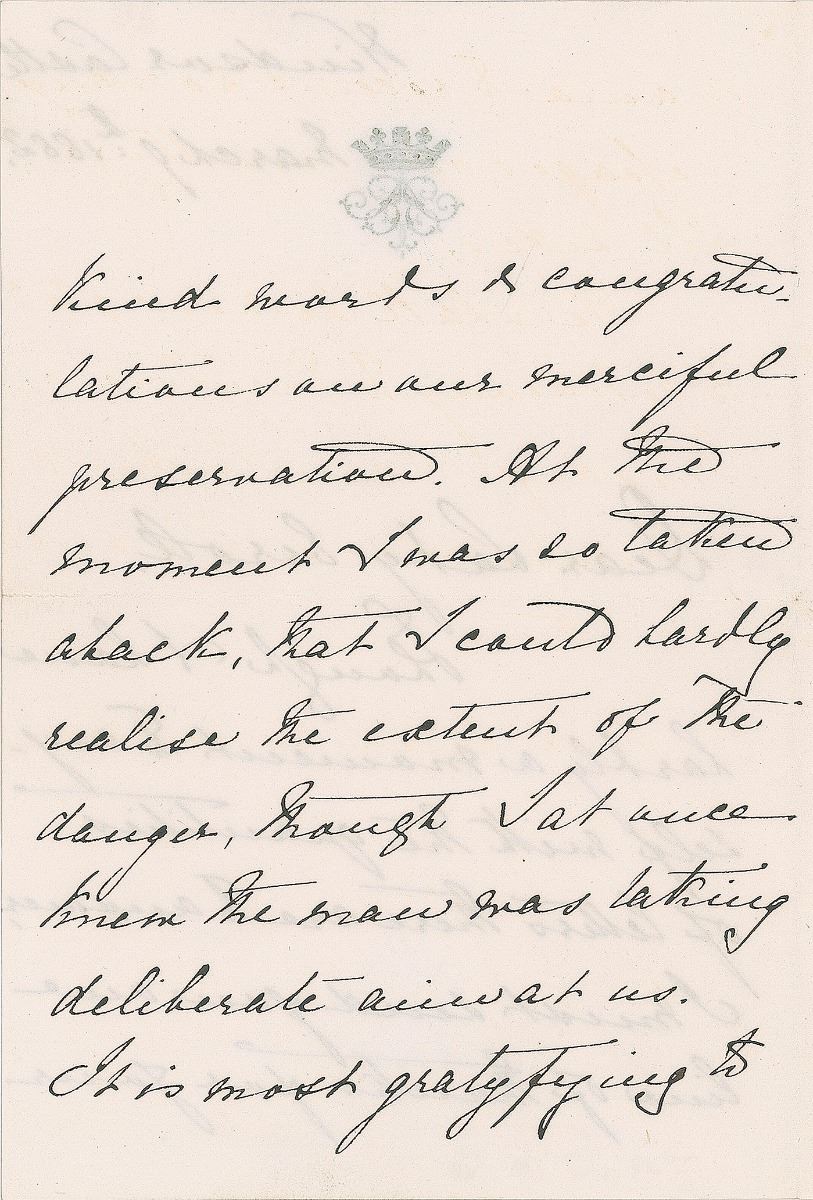 kind words & congratu-
lations on our merciful
preservation. At the
moment I was so taken
aback, that I could hardly
realise the extent of the
danger, though I at once
knew the man was taking
deliberate aim at us.
It is most gratyfying to